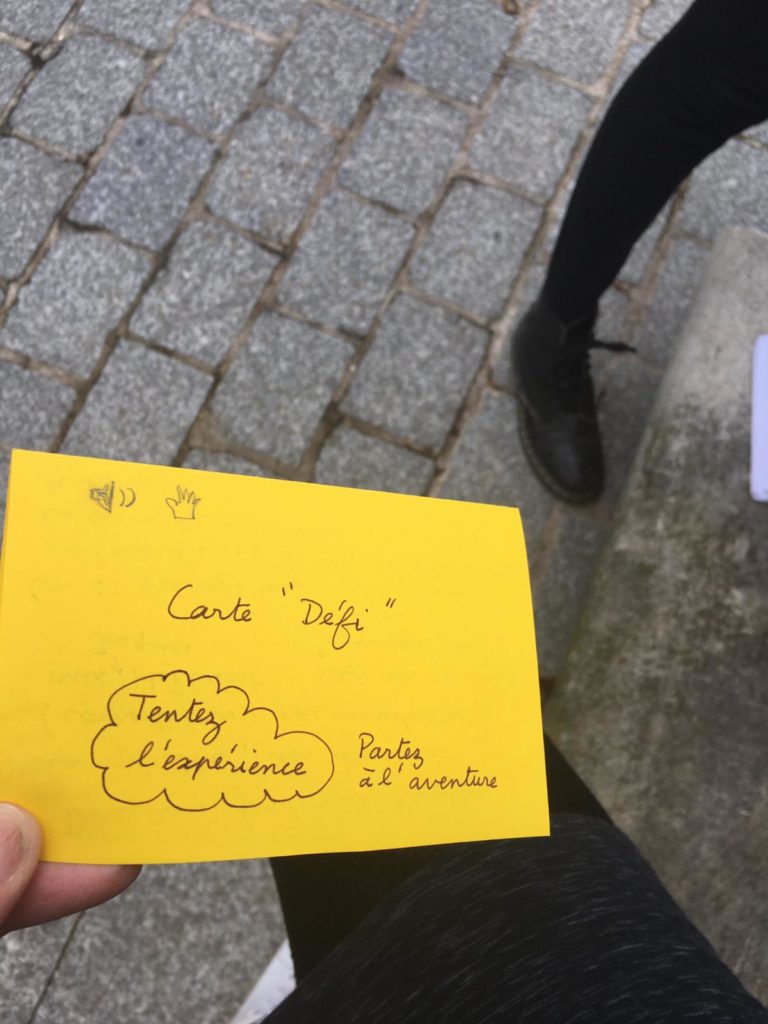 Carte "Défi"
Tentez
l'expérience
Partez
à l'aventure